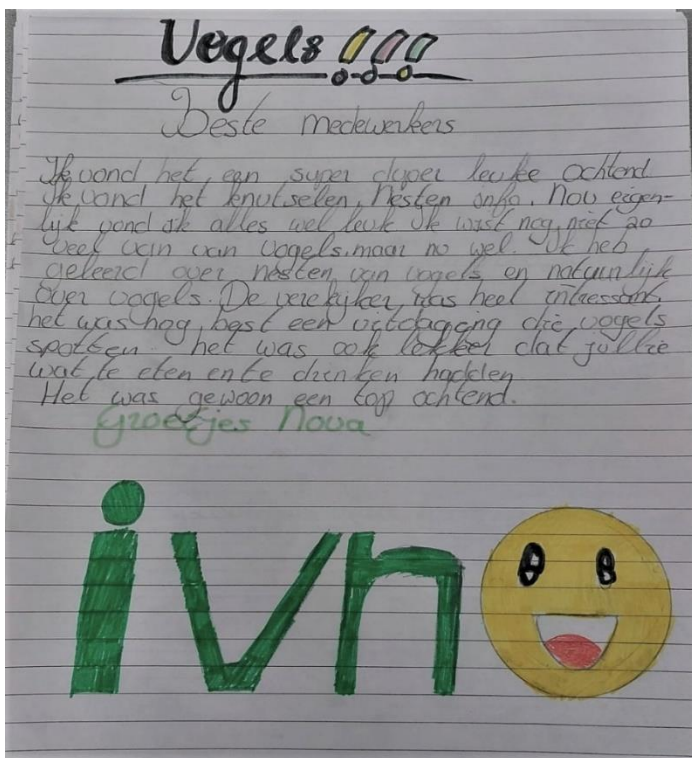 Vogels!!!
Beste medewerkers
Ik vond het een super duper leuke ochtend
Ik vond het knutselen, Nesten info. Nou eigen-
lijk vond ik alles wel leuk Ik wist nog niet zo
veel van van vogels, maar nu wel. Ik heb
geleerd over nesten van vogels en natuurlijk
over vogels. De verekijker was heel intressant,
het was nog best een uitdaging die vogels
spotten het was ook lekker dat jullie
wat te eten en te drinken hadden
Het was gewoon een top ochtend.
Groetjes Nova
ivn